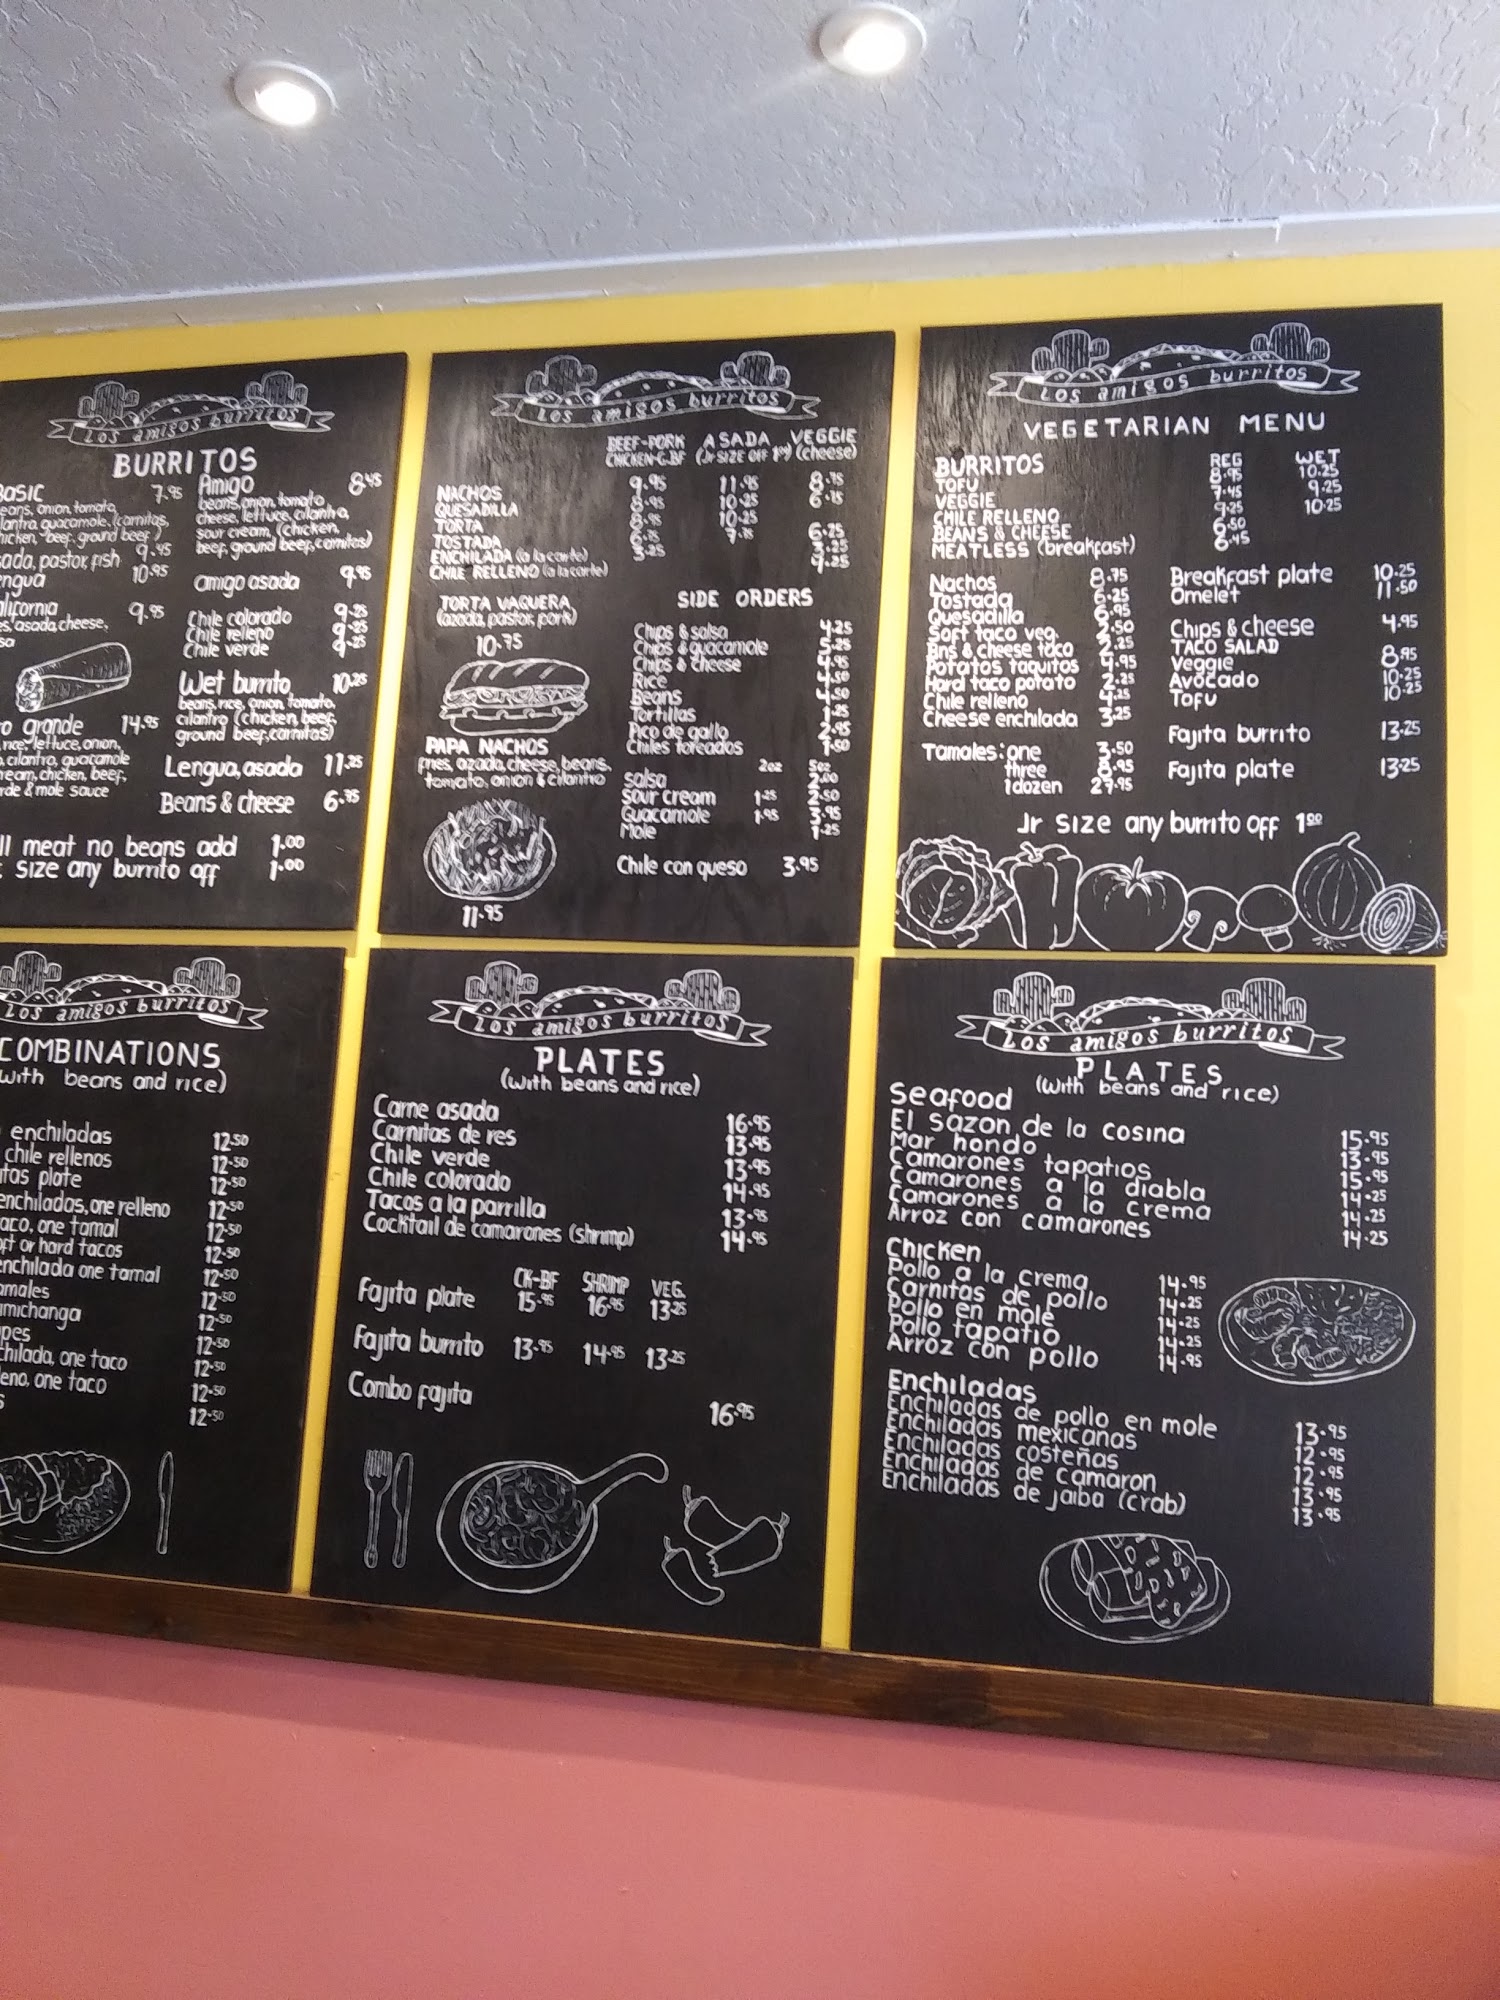 Los amigos burritos
BURRITOS
7.95
beans, onion, tomato,
guacamole, (carnitas,
beef, ground beef)
pastor, fish 9.45
10.95
9.95
asada, cheese,
grande 14.95
rice, lettuce, onion,
cilantro, guacamole
cream, chicken, beef,
& mole sauce
Amigo 8.45
beans, onion, tomato
cheese, lettuce, cilantro,
sour cream, (chicken,
beef, ground beef, carnitas)
amigo asada 9.95
Chile colorado 9.25
Chile relleno 9.25
Chile verde 9.25
Wet burrito 10.25
beans, rice, onion, tomato,
cilantro (chicken, beef,
ground beef, carnitas)
Lengua, asada 11.25
Beans & cheese 6.75
meat no beans add 1.00
size any burrito off 1.00
Los amigos burritos
BEEF-PORK ASADA VEGGIE
CHICKEN-G.BF (Jr SIZE OFF 1⁰⁰) (cheese)
NACHOS 9.95 11.95 8.75
QUESADILLA 8.95 10.25 6.75
TORTA 8.95 10.25
TOSTADA 6.75 7.75 6.25
ENCHILADA (a la carte) 3.25 3.25
CHILE RELLENO (a la carte) 4.25
TORTA VAQUERA
(azada, pastor, pork)
10.75
PAPA NACHOS
fries, azada, cheese, beans,
tomato, onion & cilantro
11.95
SIDE ORDERS
Chips & salsa 4.25
Chips & guacamole 5.25
Chips & cheese 4.95
Rice 4.50
Beans 4.50
Tortillas 1.25
Pico de gallo 2.95
Chiles toreados 1.50
2oz 5oz
salsa 2.00
Sour cream 1.25 2.50
Guacamole 1.95 3.95
Mole 1.25
Chile con queso 3.95
Los amigos burritos
VEGETARIAN MENU
BURRITOS REG WET
TOFU 8.95 10.25
VEGGIE 7.45 9.25
CHILE RELLENO 9.25 10.25
BEANS & CHEESE 6.50
MEATLESS (breakfast) 6.45
Nachos 8.75
Tostada 6.25
Quesadilla 6.95
Soft taco veg. .50
Bns & cheese taco 2.25
Potatos taquitos 4.95
Hard taco potato 2.25
Chile relleno 4.25
Cheese enchilada 3.25
Tamales: one 3.50
three 8.95
1 dozen 27.95
Breakfast plate 10.25
Omelet 11.50
Chips & cheese 4.95
TACO SALAD
Veggie 8.95
Avocado 10.25
TOFU 10.25
Fajita burrito 13.25
Fajita plate 13.25
Jr size any burrito off 1⁰⁰
Los amigos burritos
COMBINATIONS
(with beans and rice)
enchiladas 12.50
chile rellenos 12.50
plate 12.50
enchiladas, one relleno 12.50
taco, one tamal 12.50
or hard tacos 12.50
enchilada one tamal 12.50
12.50
12.50
12.50
one taco 12.50
one taco 12.50
12.50
Los amigos burritos
PLATES
(with beans and rice)
Carne asada 16.95
Carnitas de res 13.95
Chile verde 13.95
Chile colorado 14.95
Tacos a la parrilla 13.95
Cocktail de camarones (shrimp) 14.95
CK-BF SHRIMP VEG.
Fajita plate 15.95 16.95 13.25
Fajita burrito 13.95 14.95 13.25
Combo fajita 16.95
Los amigos burritos
PLATES
(with beans and rice)
Seafood
El sazon de la cosina 15.95
Mar hondo 13.95
Camarones tapatios 15.95
Camarones a la diabla 14.25
Camarones a la crema 14.25
Arroz con camarones 14.25
Chicken
Pollo a la crema 14.95
Carnitas de pollo 14.25
Pollo en mole 14.25
Pollo tapatio 14.25
Arroz con pollo 14.95
Enchiladas
Enchiladas de pollo en mole 13.95
Enchiladas mexicanas 12.95
Enchiladas costeñas 12.95
Enchiladas de camaron 13.95
Enchiladas de jaiba (crab) 13.95